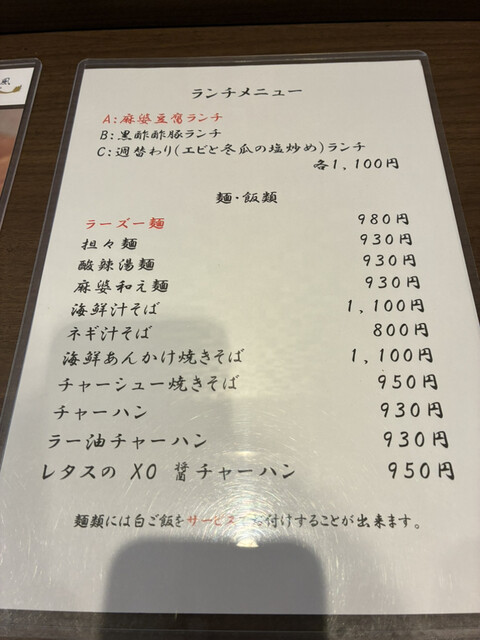 風
ランチメニュー
A:麻婆豆腐ランチ
B:黒酢酢豚ランチ
C:週替わり(エビと冬瓜の塩炒め)ランチ
各1,100円
麺・飯類
ラーズー麺 980円
担々麺 930円
酸辣湯麺 930円
麻婆和え麺 930円
海鮮汁そば 1,100円
ネギ汁そば 800円
海鮮あんかけ焼きそば 1,100円
チャーシュー焼きそば 950円
チャーハン 930円
ラー油チャーハン 930円
レタスの XO 醤チャーハン 950円
麺類には白ご飯をサービスでお付けすることが出来ます。